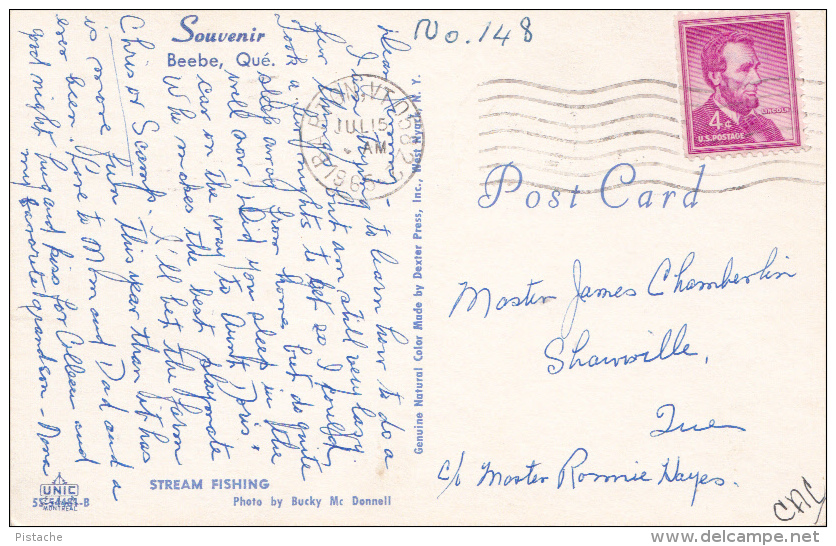 Souvenir
Beebe, Qué.
No. 148
4¢
LINCOLN
U.S. POSTAGE
BARTON, VT.
JUL 15
AM
1965
Post Card
Master James Chamberlin
Shawville,
Que
c/o Master Ronnie Hayes.
Dear
I am trying to learn how to do a
few things but am still very lazy.
Took a few nights to get so I could
sleep away from home but do quite
well now. Did you sleep in the
car on the way to Aunt Doris,
Who makes the best playmate
Chris or Scamp. I'll bet the farm
is more fun this year than it has
ever been. Love to Mom and Dad and a
good night hug and kiss for Colleen and
my favorite grandson - Nana
Genuine Natural Color Made by Dexter Press, Inc., West Nyack, N. Y.
STREAM FISHING
Photo by Bucky Mc Donnell
UNIC
MONTREAL
Pistache
www.delcampe.net